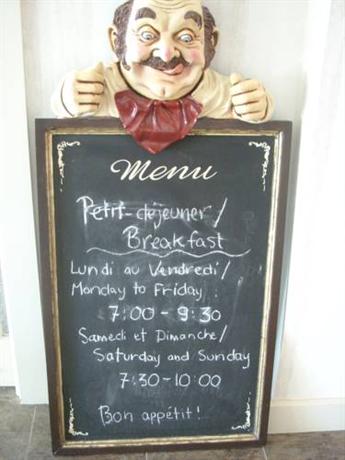 Menu
Petit-déjeuner/
Breakfast
Lundi au Vendredi/
Monday to Friday
7:00 - 9:30
Samedi et Dimanche/
Saturday and Sunday
7:30-10:00
Bon appétit!